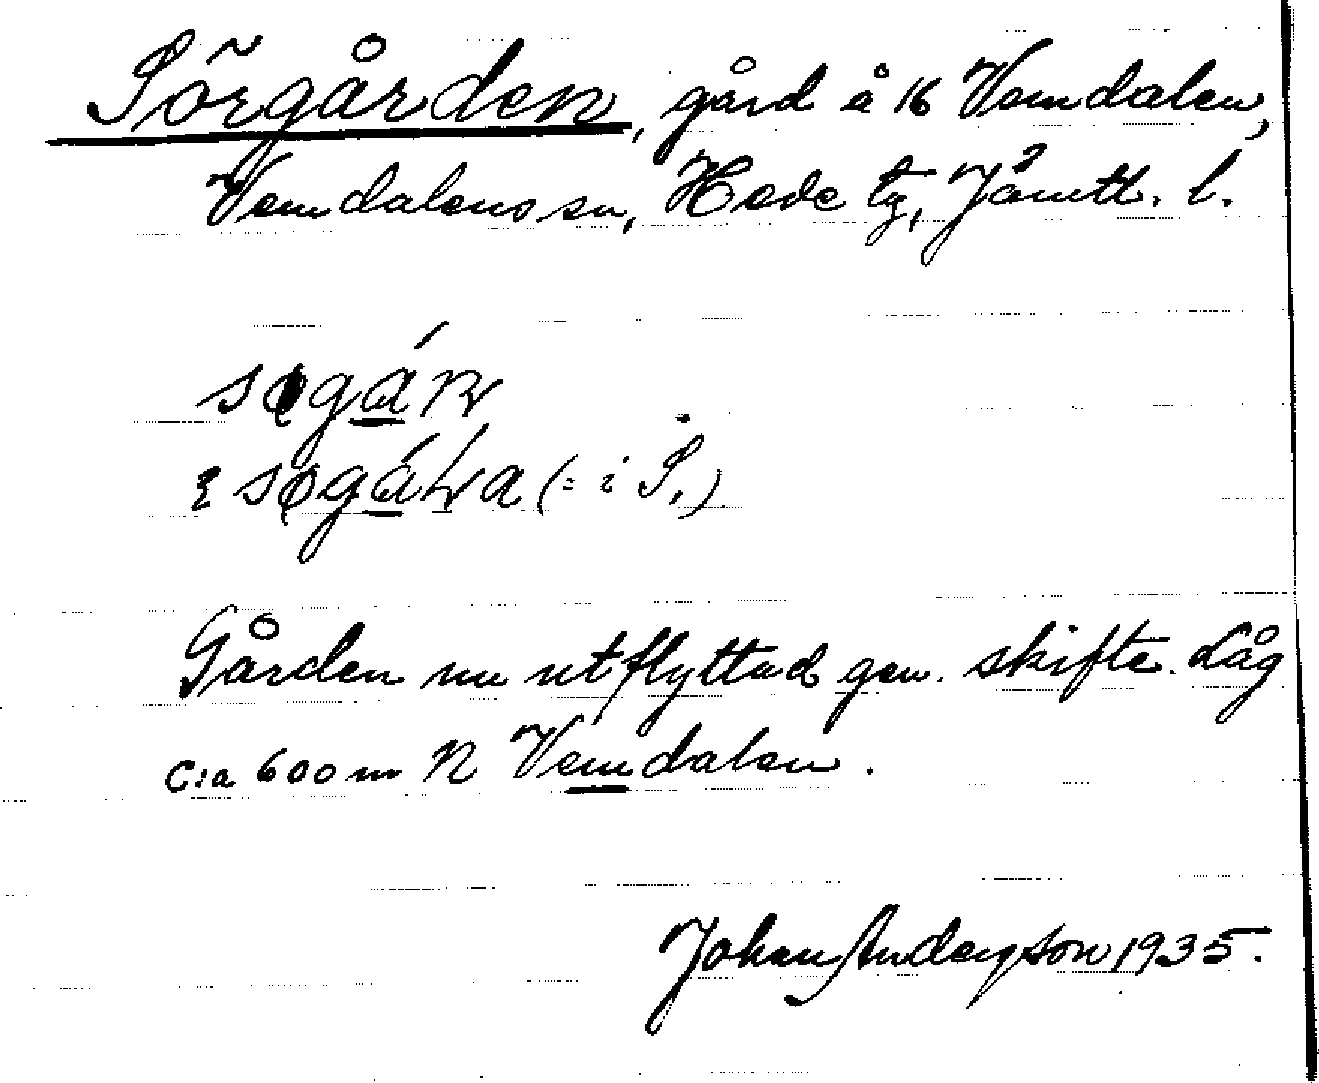 Sörgården, gård å 16 Vemdalen,
Vemdalens sn, Hede tg, Jämtl. l.
(= i S.)
Gården nu utflyttad gen. skifte. Låg
c:a 600 m N Vemdalen.
Johan Anderson 1935.